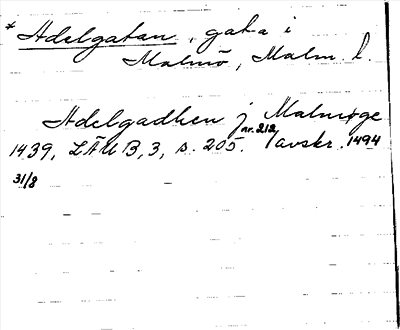 * Adelgatan, gata i
Malmö, Malm. l.
Adelgadhen j Malmøge
1439, LÄU B, 3, s. 205. nr. 212, avskr. 1494
31/8